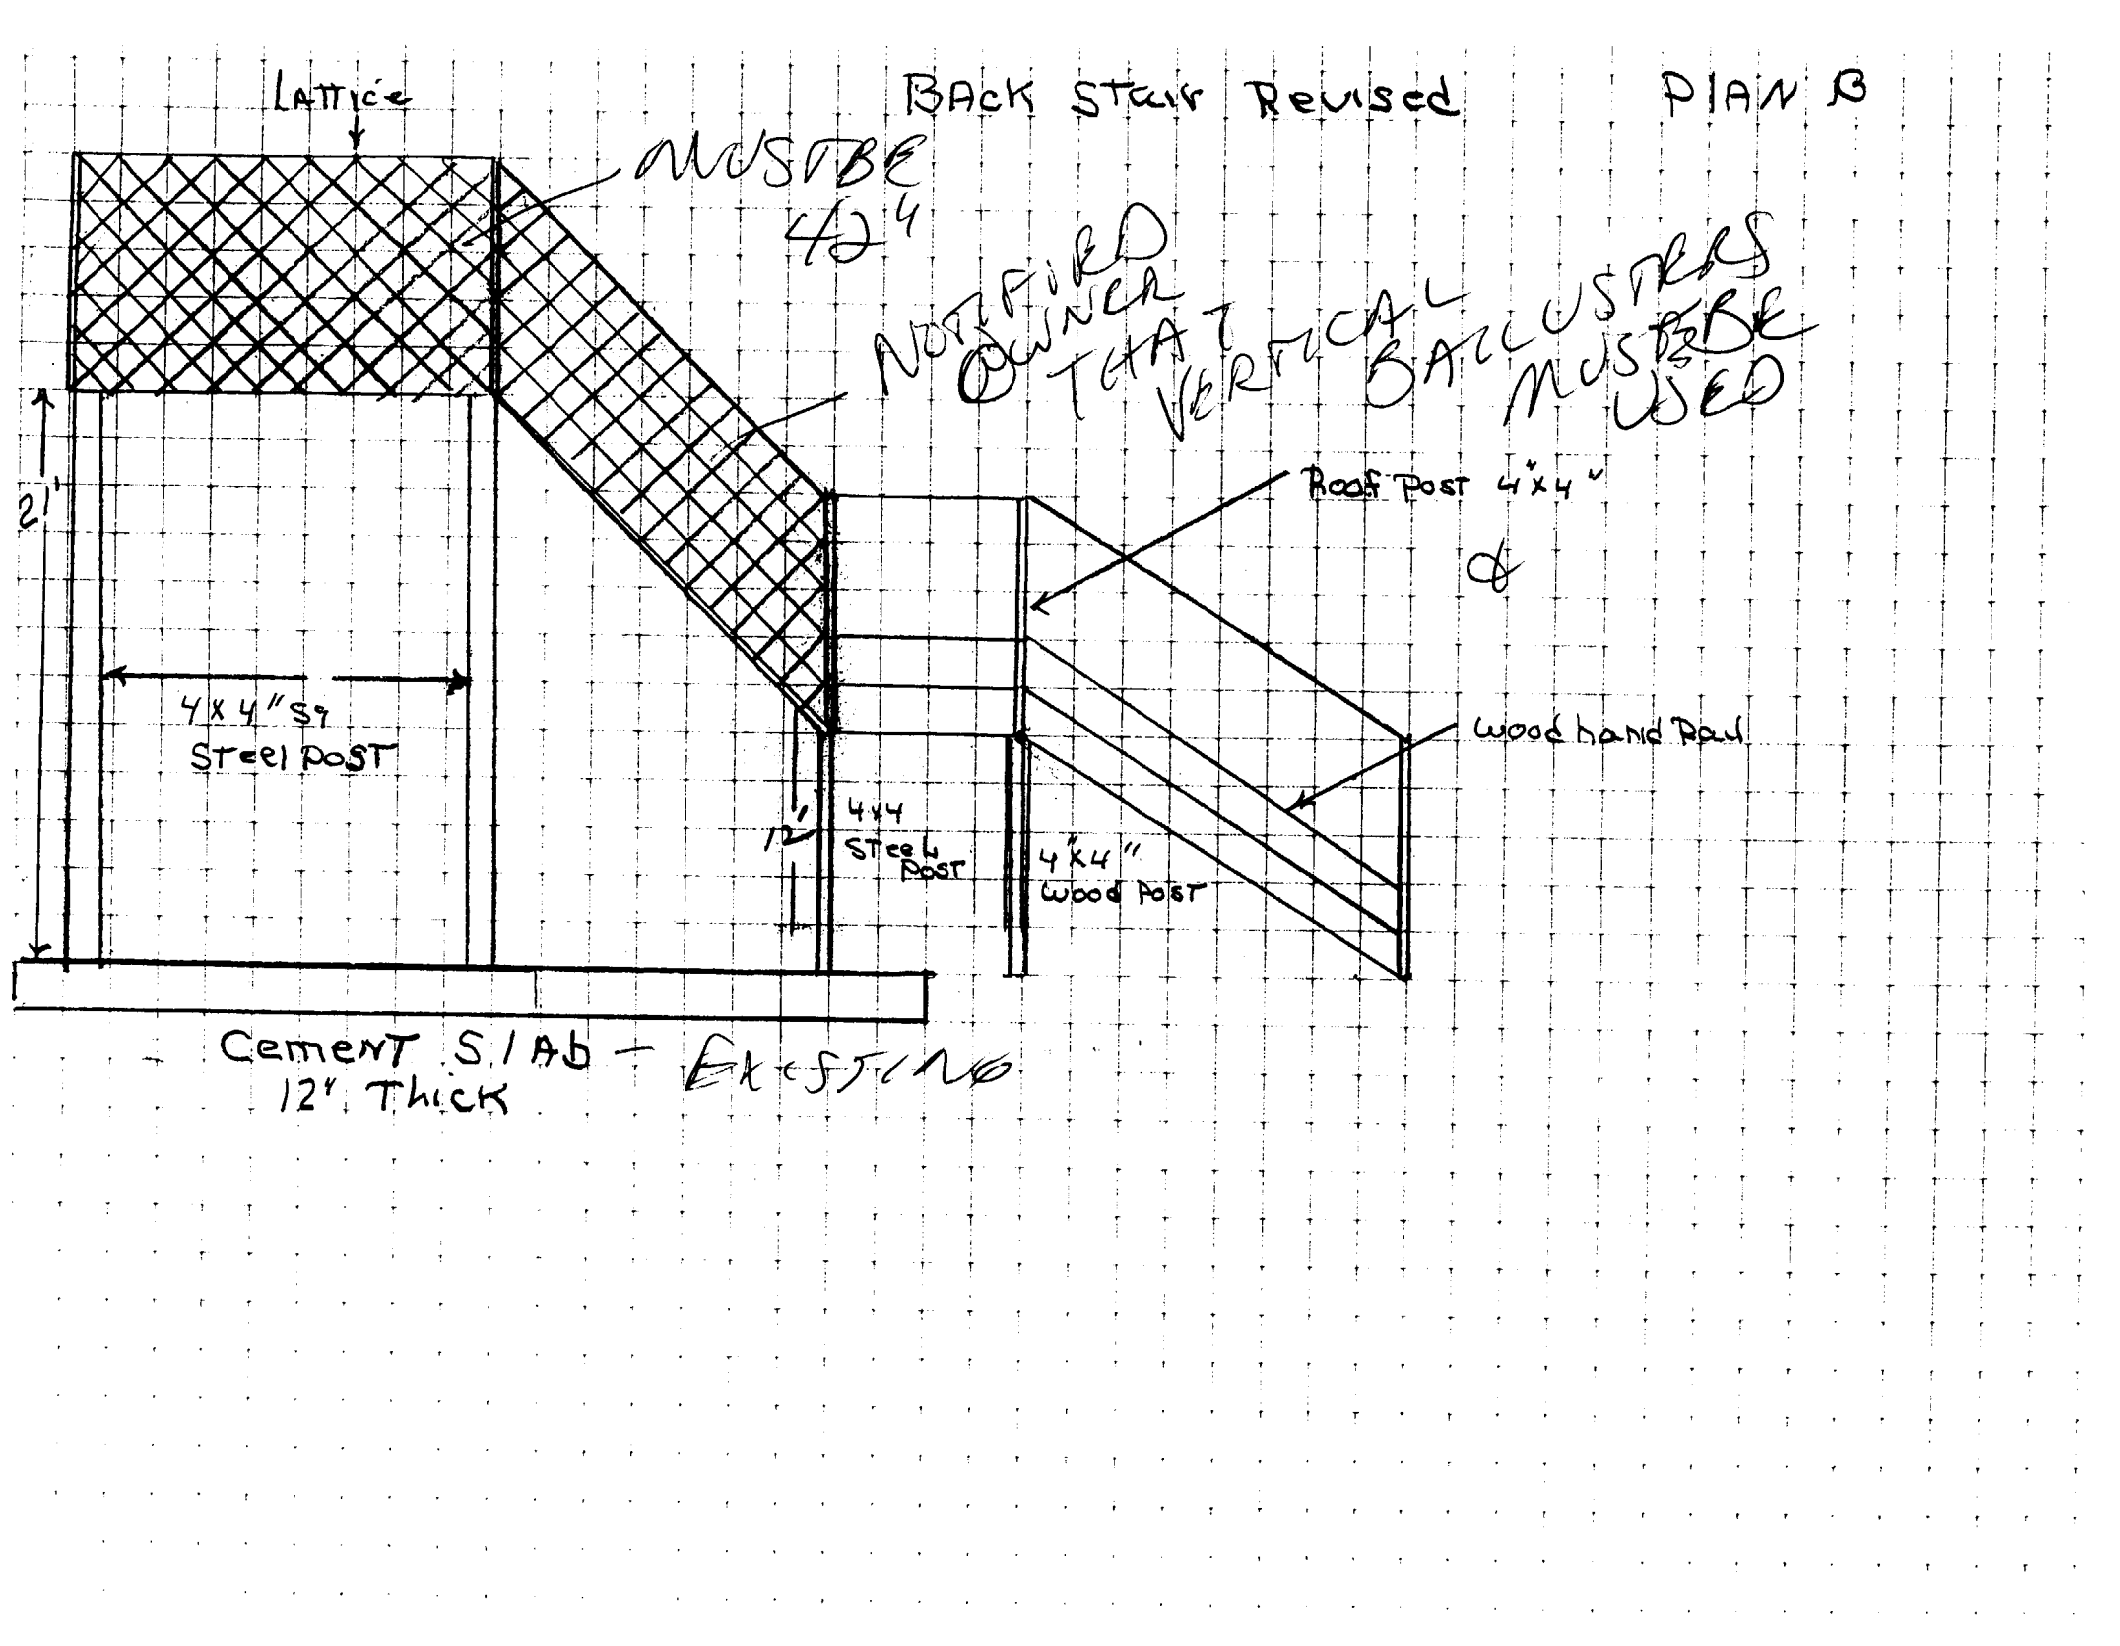 BACK Stair Revised PlAN B
LATTice
MUSTBE
42"
NOTIFIED
OWNER
THAT
VERTICAL
BALLUSTERS
MUSTBE
USED
21'
Roof Post 4"x4"
4 x 4" Sq
Steel Post
wood hand Rail
12'
4x4
Steel
Post
4"x4"
wood Post
Cement SlAb - EXISTING
12" Thick